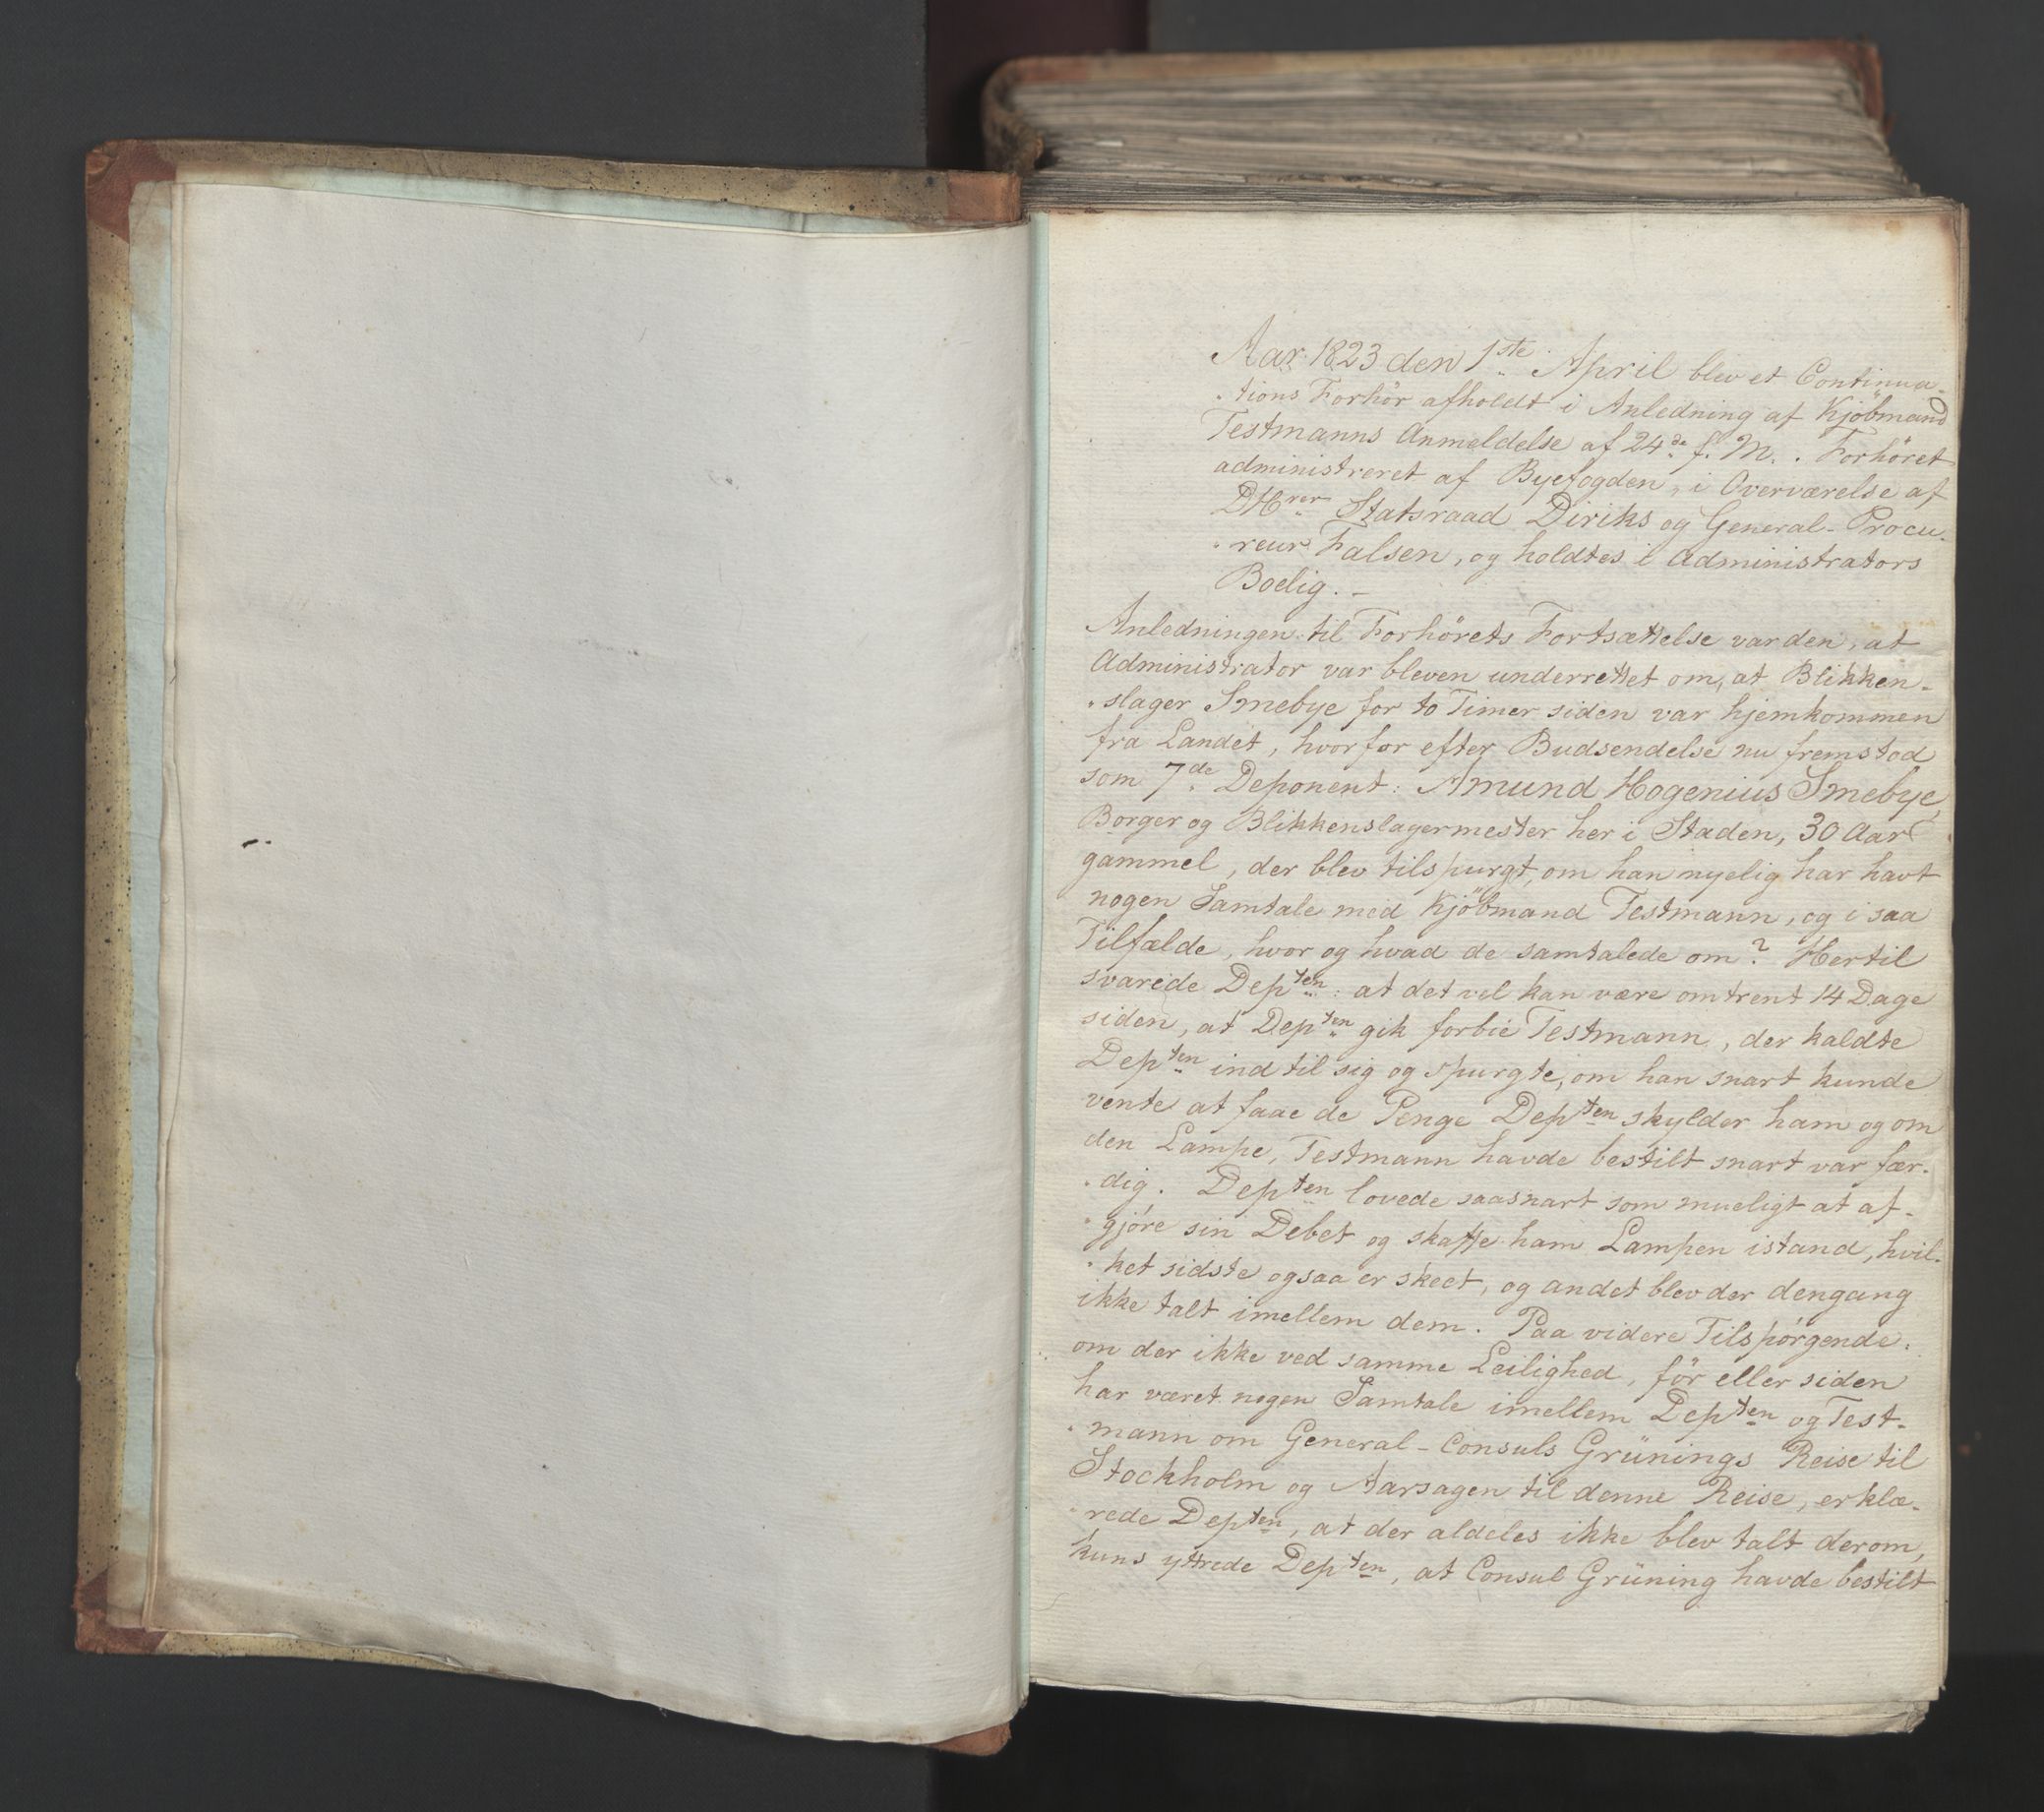 Aar 1823 den 1ste April blev et Continua-
tions Forhör afholdt i Anledning af Kjöbmand
Testmanns Anmeldelse af 24de f. M. Forhöret
administreret af Byefogden, i Overværelse af
DHrer Statsraad Diriks og General-Procu-
reur Falsen, og holdtes i Administrators
Boelig. -
Anledningen til Forhörets Fortsættelse var den, at
Administrator var bleven underrettet om, at Blikken-
slager Smebye for to Timer siden var hjemkommen
fra Landet, hvorfor efter Budsendelse nu fremstod
som 7de Deponent: Amund Hogenius Smebye,
Borger og Blikkenslagermester her i Staden, 30 Aar
gammel, der blev tilspurgt, om han nyelig har havt
nogen Samtale med Kjöbmand Testmann, og i saa
Tilfælde, hvor og hvad de samtalede om? Hertil
svarede Depten: at det vel kan være omtrent 14 Dage
siden, at Depten gik forbie Testmann, der kaldte
Depten ind til sig og spurgte, om han snart kunde
vente at faae de Penge Depten skylder ham og om
den Lampe, Testmann havde bestilt snart var fær-
dig. Depten lovede saasnart som mueligt at af-
gjöre sin Debet og skaffe ham Lampen istand, hvil-
ket sidste ogsaa er skeet, og andet blev der dengang
ikke talt imellem dem. Paa videre Tilspörgende:
om der ikke ved samme Leilighed, för eller siden
har været nogen Samtale imellem Depten og Test-
mann om General-Consuls Grünings Reise til
Stockholm og Aarsagen til denne Reise, erklæ-
rede Depten, at der aldeles ikke blev talt derom,
kuns yttrede Depten, at Consul Grüning havde bestilt